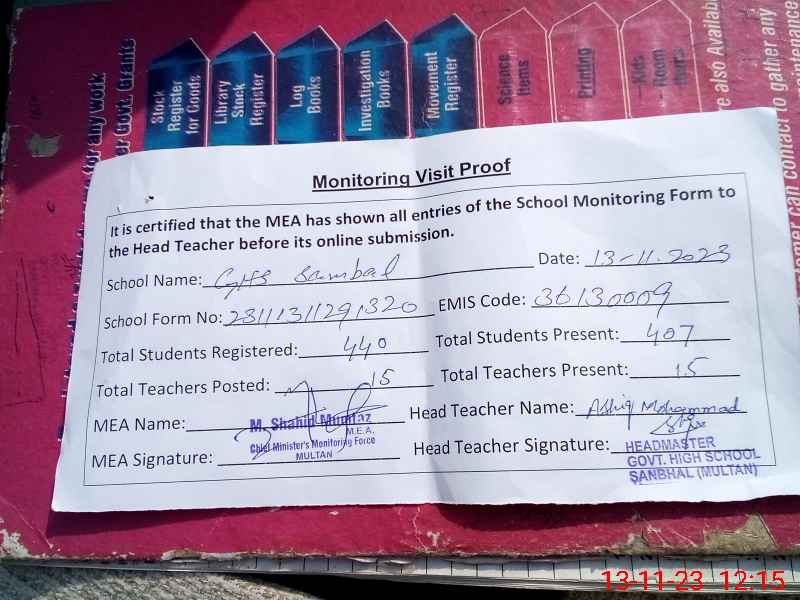 Stock Register for Goods
Library Stock Register
Log Books
Investigation Books
Movement Register
Science Items
Printing
for any work
er Govt. Grants
re also Availab
tomer can contact to gather any
Monitoring Visit Proof
It is certified that the MEA has shown all entries of the School Monitoring Form to
the Head Teacher before its online submission.
School Name: GHS Sambal Date: 13-11.2023
School Form No: 2811131129,320 EMIS Code: 36130009
Total Students Registered: 440 Total Students Present: 407
Total Teachers Posted: 15 Total Teachers Present: 15
MEA Name: M. Shahid Mumtaz Head Teacher Name: Ashiq Mohammad
M.E.A.
Chief Minister's Monitoring Force
MULTAN
MEA Signature: Head Teacher Signature:
HEADMASTER
GOVT. HIGH SCHOOL
SANBHAL (MULTAN)
13-11-23 12:15